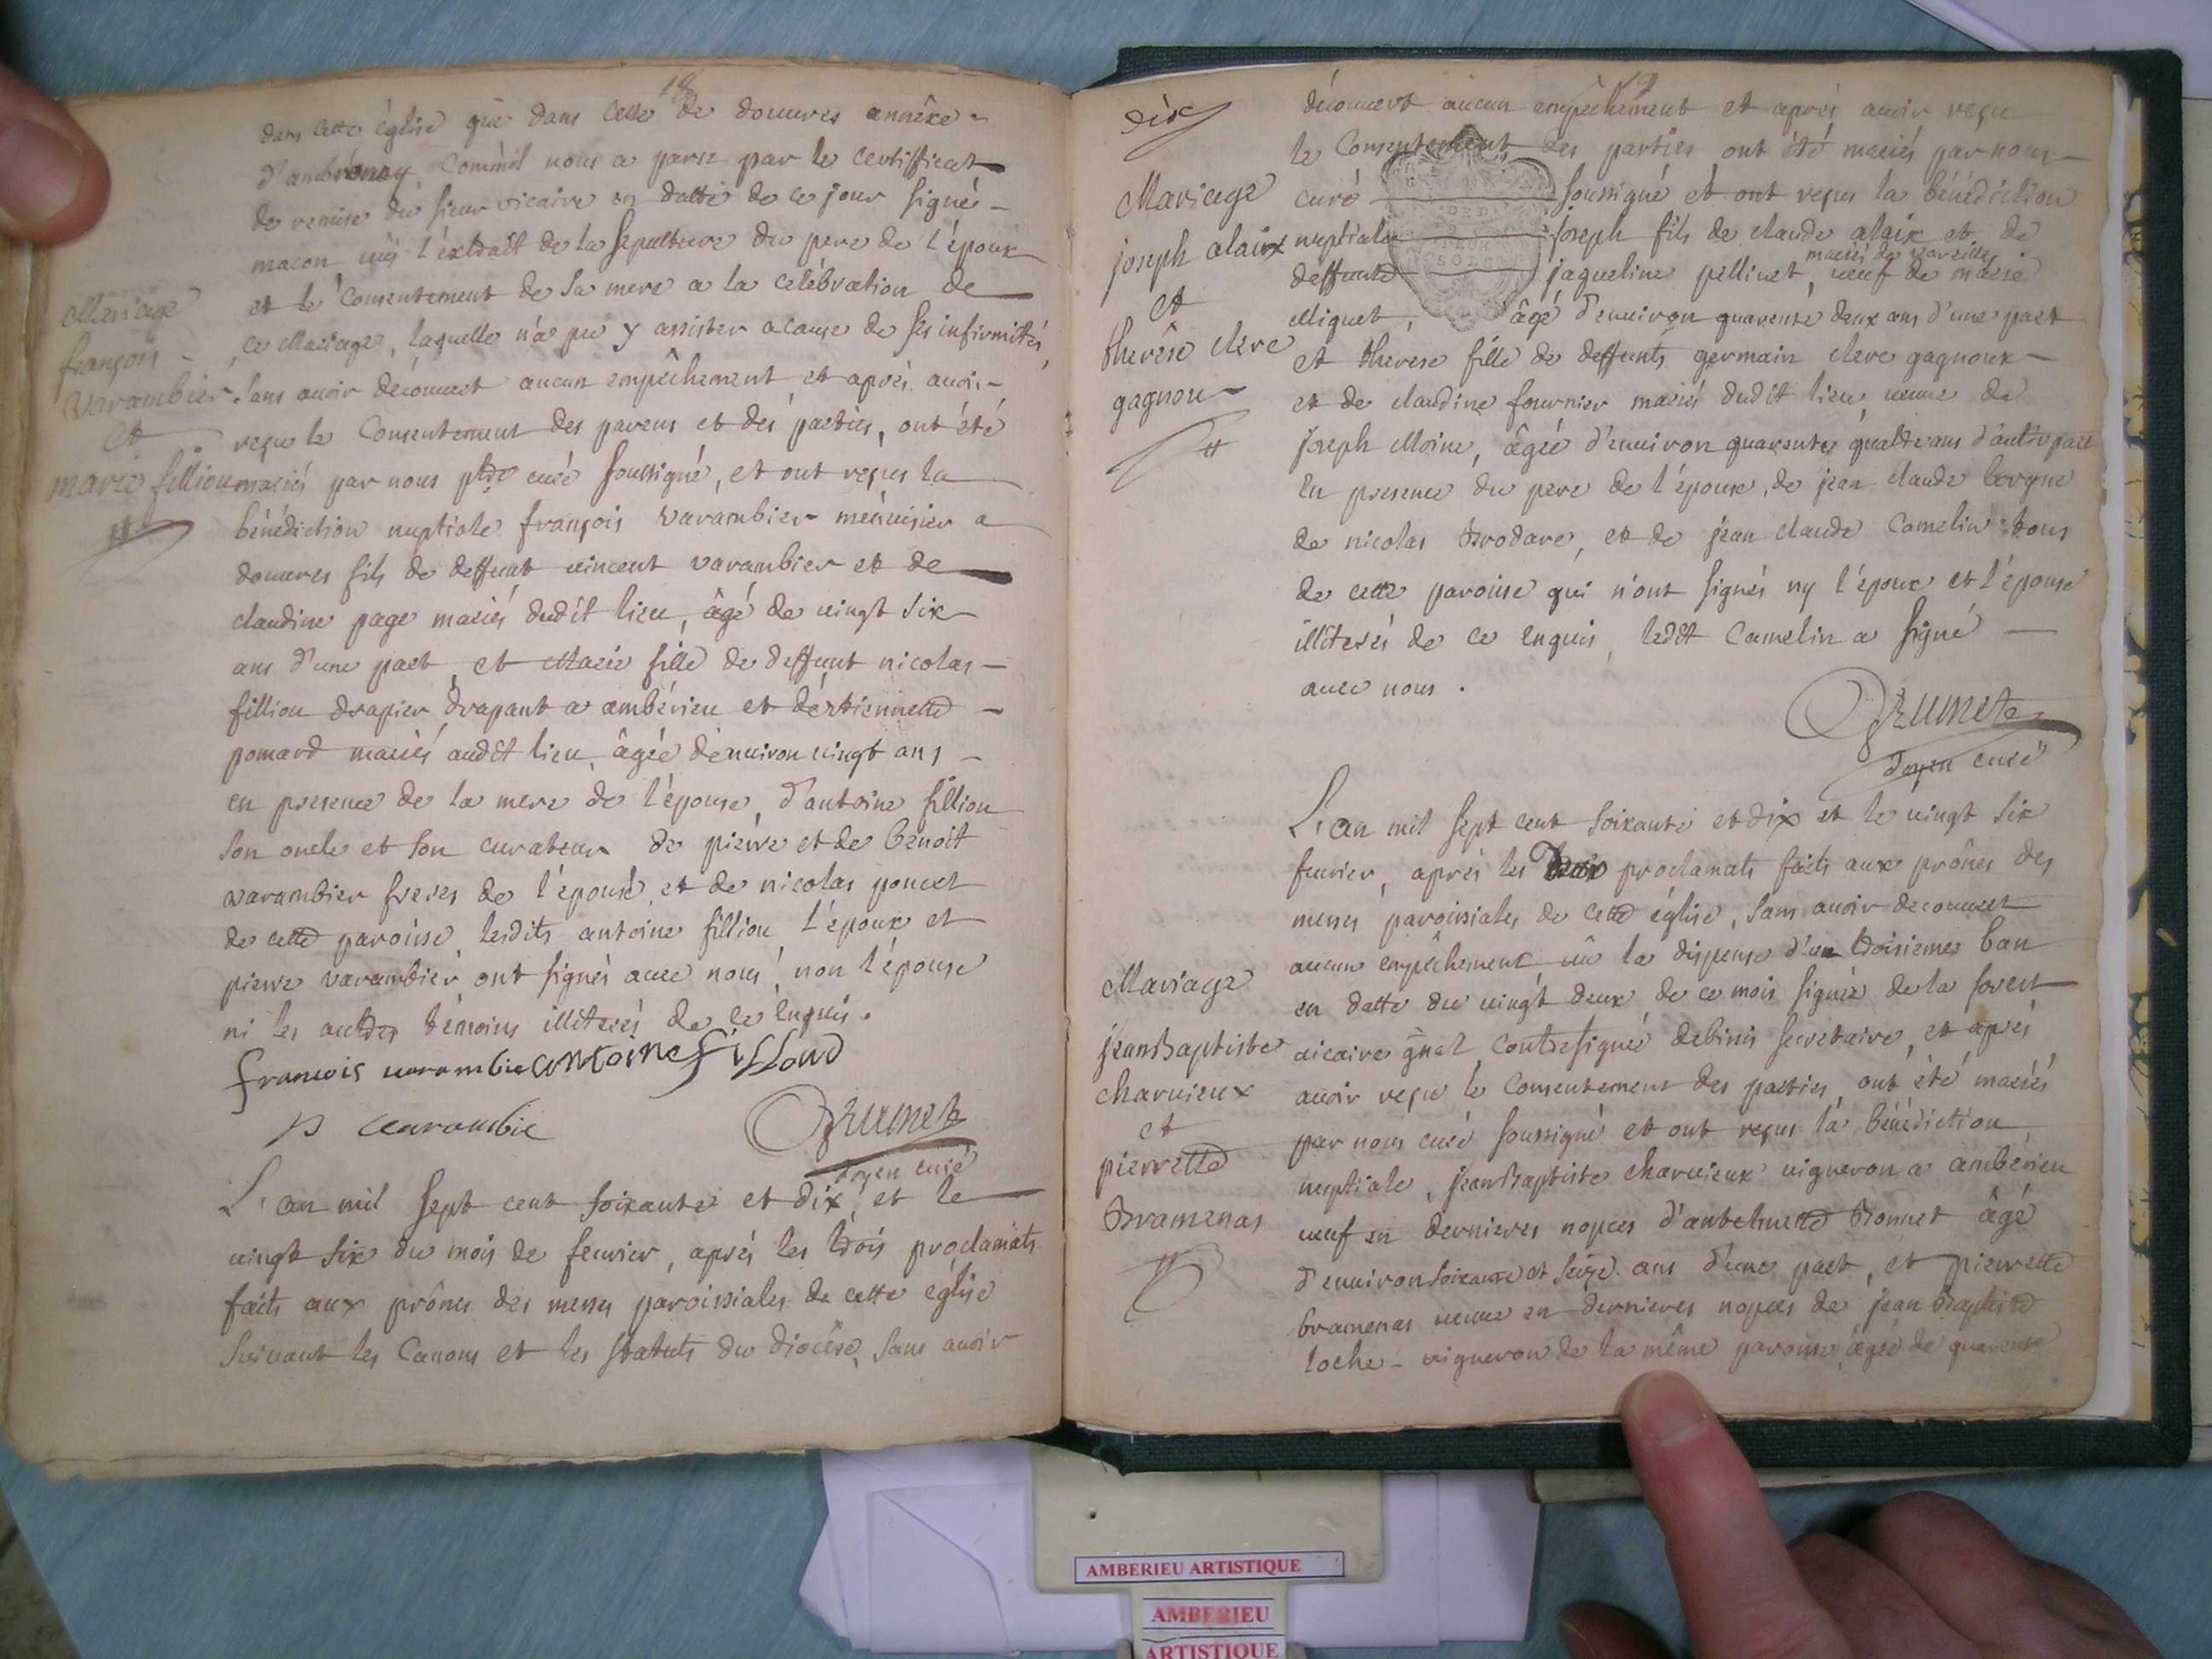 18
dans cette église que dans celle de douvres annêxe
d'ambronay, comm'il nous a paru par le certifficat
de remise du sieur vicaire en datte de ce jour signé
macon, vûs l'extrait de la sepulture du pere de l'époux
et le consentement de sa mere a la celébration de
ce Mariage, laquelle n'a pu y assister a cause de ses infirmités,
sans avoir découvert aucun empêchement et aprés avoir
reçu le Consentement des parens et des parties, ont été
mariés par nous ptre curé soussigné, et ont reçus la
bénédiction nuptiale françois varambier menuisier a
douvres fils de deffunt vincent varambier et de
claudine page mariés dudit lieu, âgé de vingt six
ans d'une part, et Marie fille de deffunt nicolas
fillion drapier drapant a ambérieu et d'estiennette
pomard mariés audit lieu, âgée d'environ vingt ans
en presence de la mere de l'épouse, d'antoine fillion
son oncle et son curateur de pierre et de benoit
varambier freres de l'épouse, et de nicolas poncet
de cette paroisse, lesdits antoine fillion, l'époux et
pierre varambier ont signés avec nous, non l'épouse
ni les autres témoins illiterés de ce enquis.
Mariage
françois
varambier
et
marie fillion
francois varambie antoine fillond
p varambie
Brunet
doyen curé
L'an mil sept cent soixante et dix, et le
vingt six du mois de fevrier, aprés les trois proclamats
faits aux prônes des messes paroissiales de cette église
suivant les Canons et les statuts du diocése, sans avoir
19
dix
découvert aucun empêchement et aprés avoir reçu
le Consentement des parties ont été mariés par nous
curé soussigné et ont reçus la bénédiction
nuptiale joseph fils de claude alaix et de
mariés de vareille
deffunte jaqueline pellinet, veuf de marie
Miguet, âgé d'environ quarente deux ans d'une part
et therese fille de deffunts germain clerc gagnoux
et de claudine fournier mariés dudit lieu, veuve de
joseph Moine, âgée d'environ quarente quatre ans d'autre part
En presence du pere de l'épouse, de jean claude borgne
de nicolas Brodare, et de jean claude Camelin tous
de cette paroisse qui n'ont signés ny l'époux et l'épouse
illiterés de ce enquis, ledit Camelin a signé
avec nous.
Mariage
joseph alaix
et
therêse clerc
gagnou
Brunet
doyen curé
L'an mil sept cent soixante et dix et le vingt six
fevrier, aprés les deux proclamats faits aux prônes des
messes paroissiales de cette église, sans avoir decouvert
aucun empêchement vû la dispense d'un troisieme ban
en datte du vingt deux de ce mois signée de la forest
vicaire gnal contresignée debinis secretaire, et aprés
avoir reçu le Consentement des parties, ont été mariés
par nous curé soussigné et ont reçus la bénédiction
nuptiale, jean Baptiste charvieux vigneron a ambérieu
veuf en dernieres nopces d'anthelmette Bonnet âgé
d'environ soixante et seize ans d'une part, et pierrette
bramenas veuve en dernieres nopces de jean Baptiste
loche vigneron de la même paroisse, âgée de quarente
Mariage
jean Baptiste
charvieux
et
pierrette
Bramenas
AMBERIEU ARTISTIQUE
AMBERIEU
ARTISTIQUE